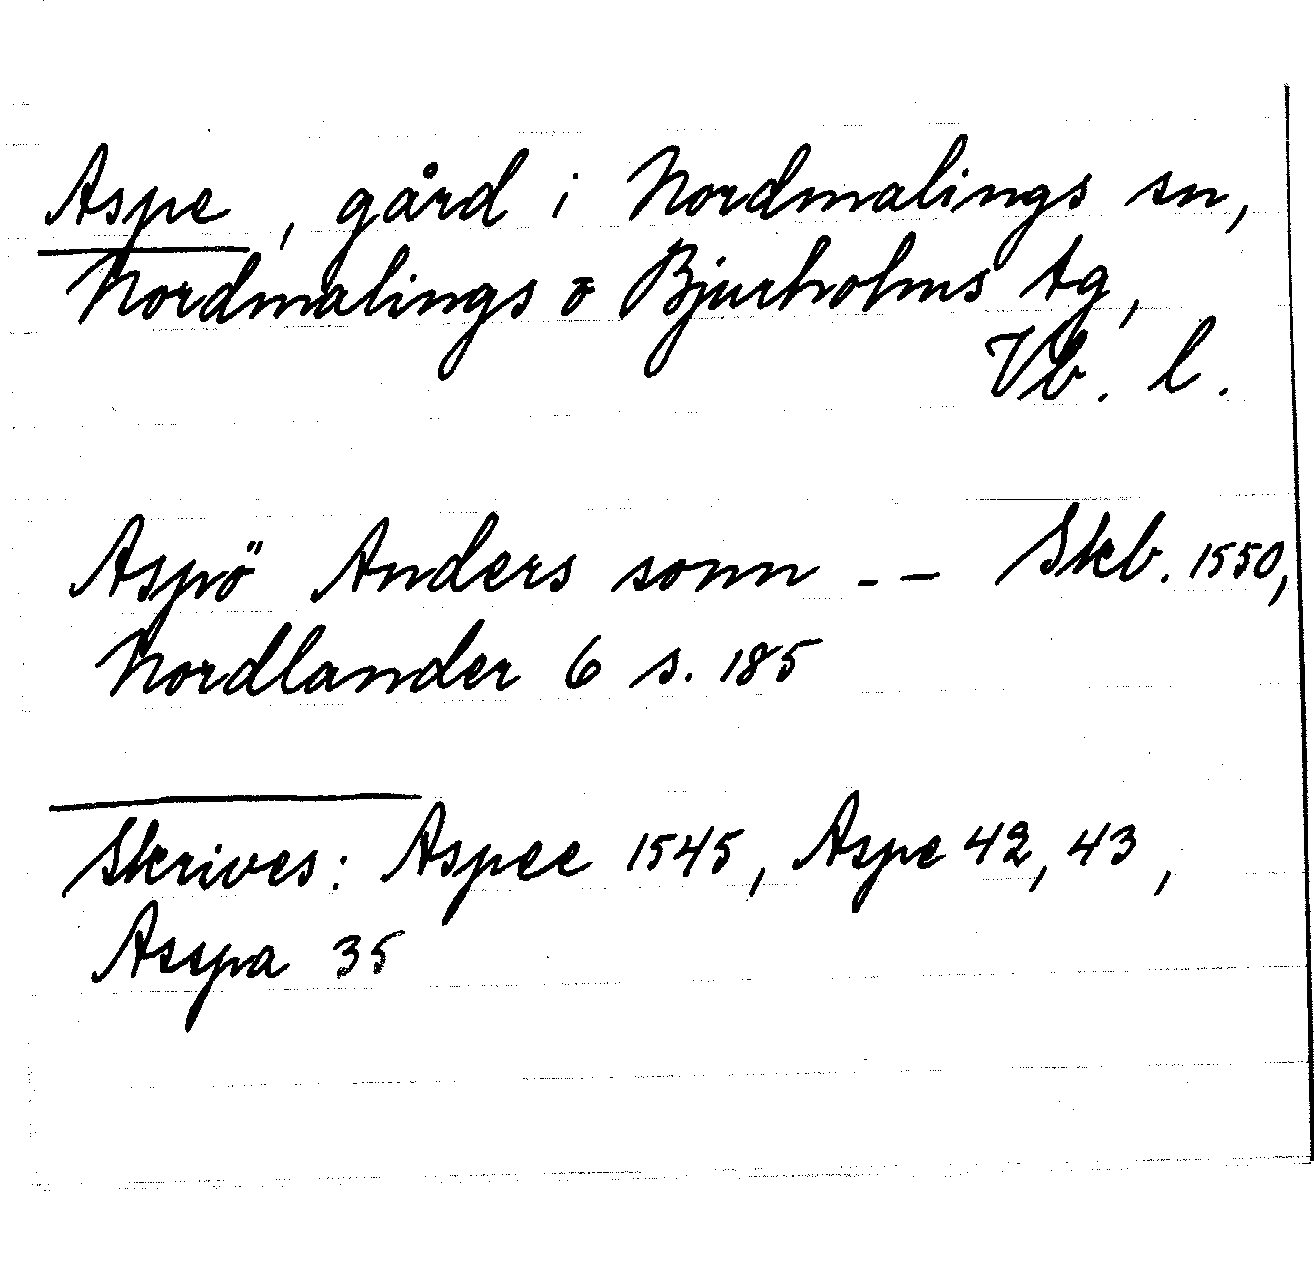 Aspe, gård i Nordmalings sn,
Nordmalings o Bjurholms tg,
Vb. l.
Aspö Anders sonn - - Skb. 1550,
Nordlander 6 s. 185
Skrives: Aspee 1545, Aspe 42, 43,
Asspa 35